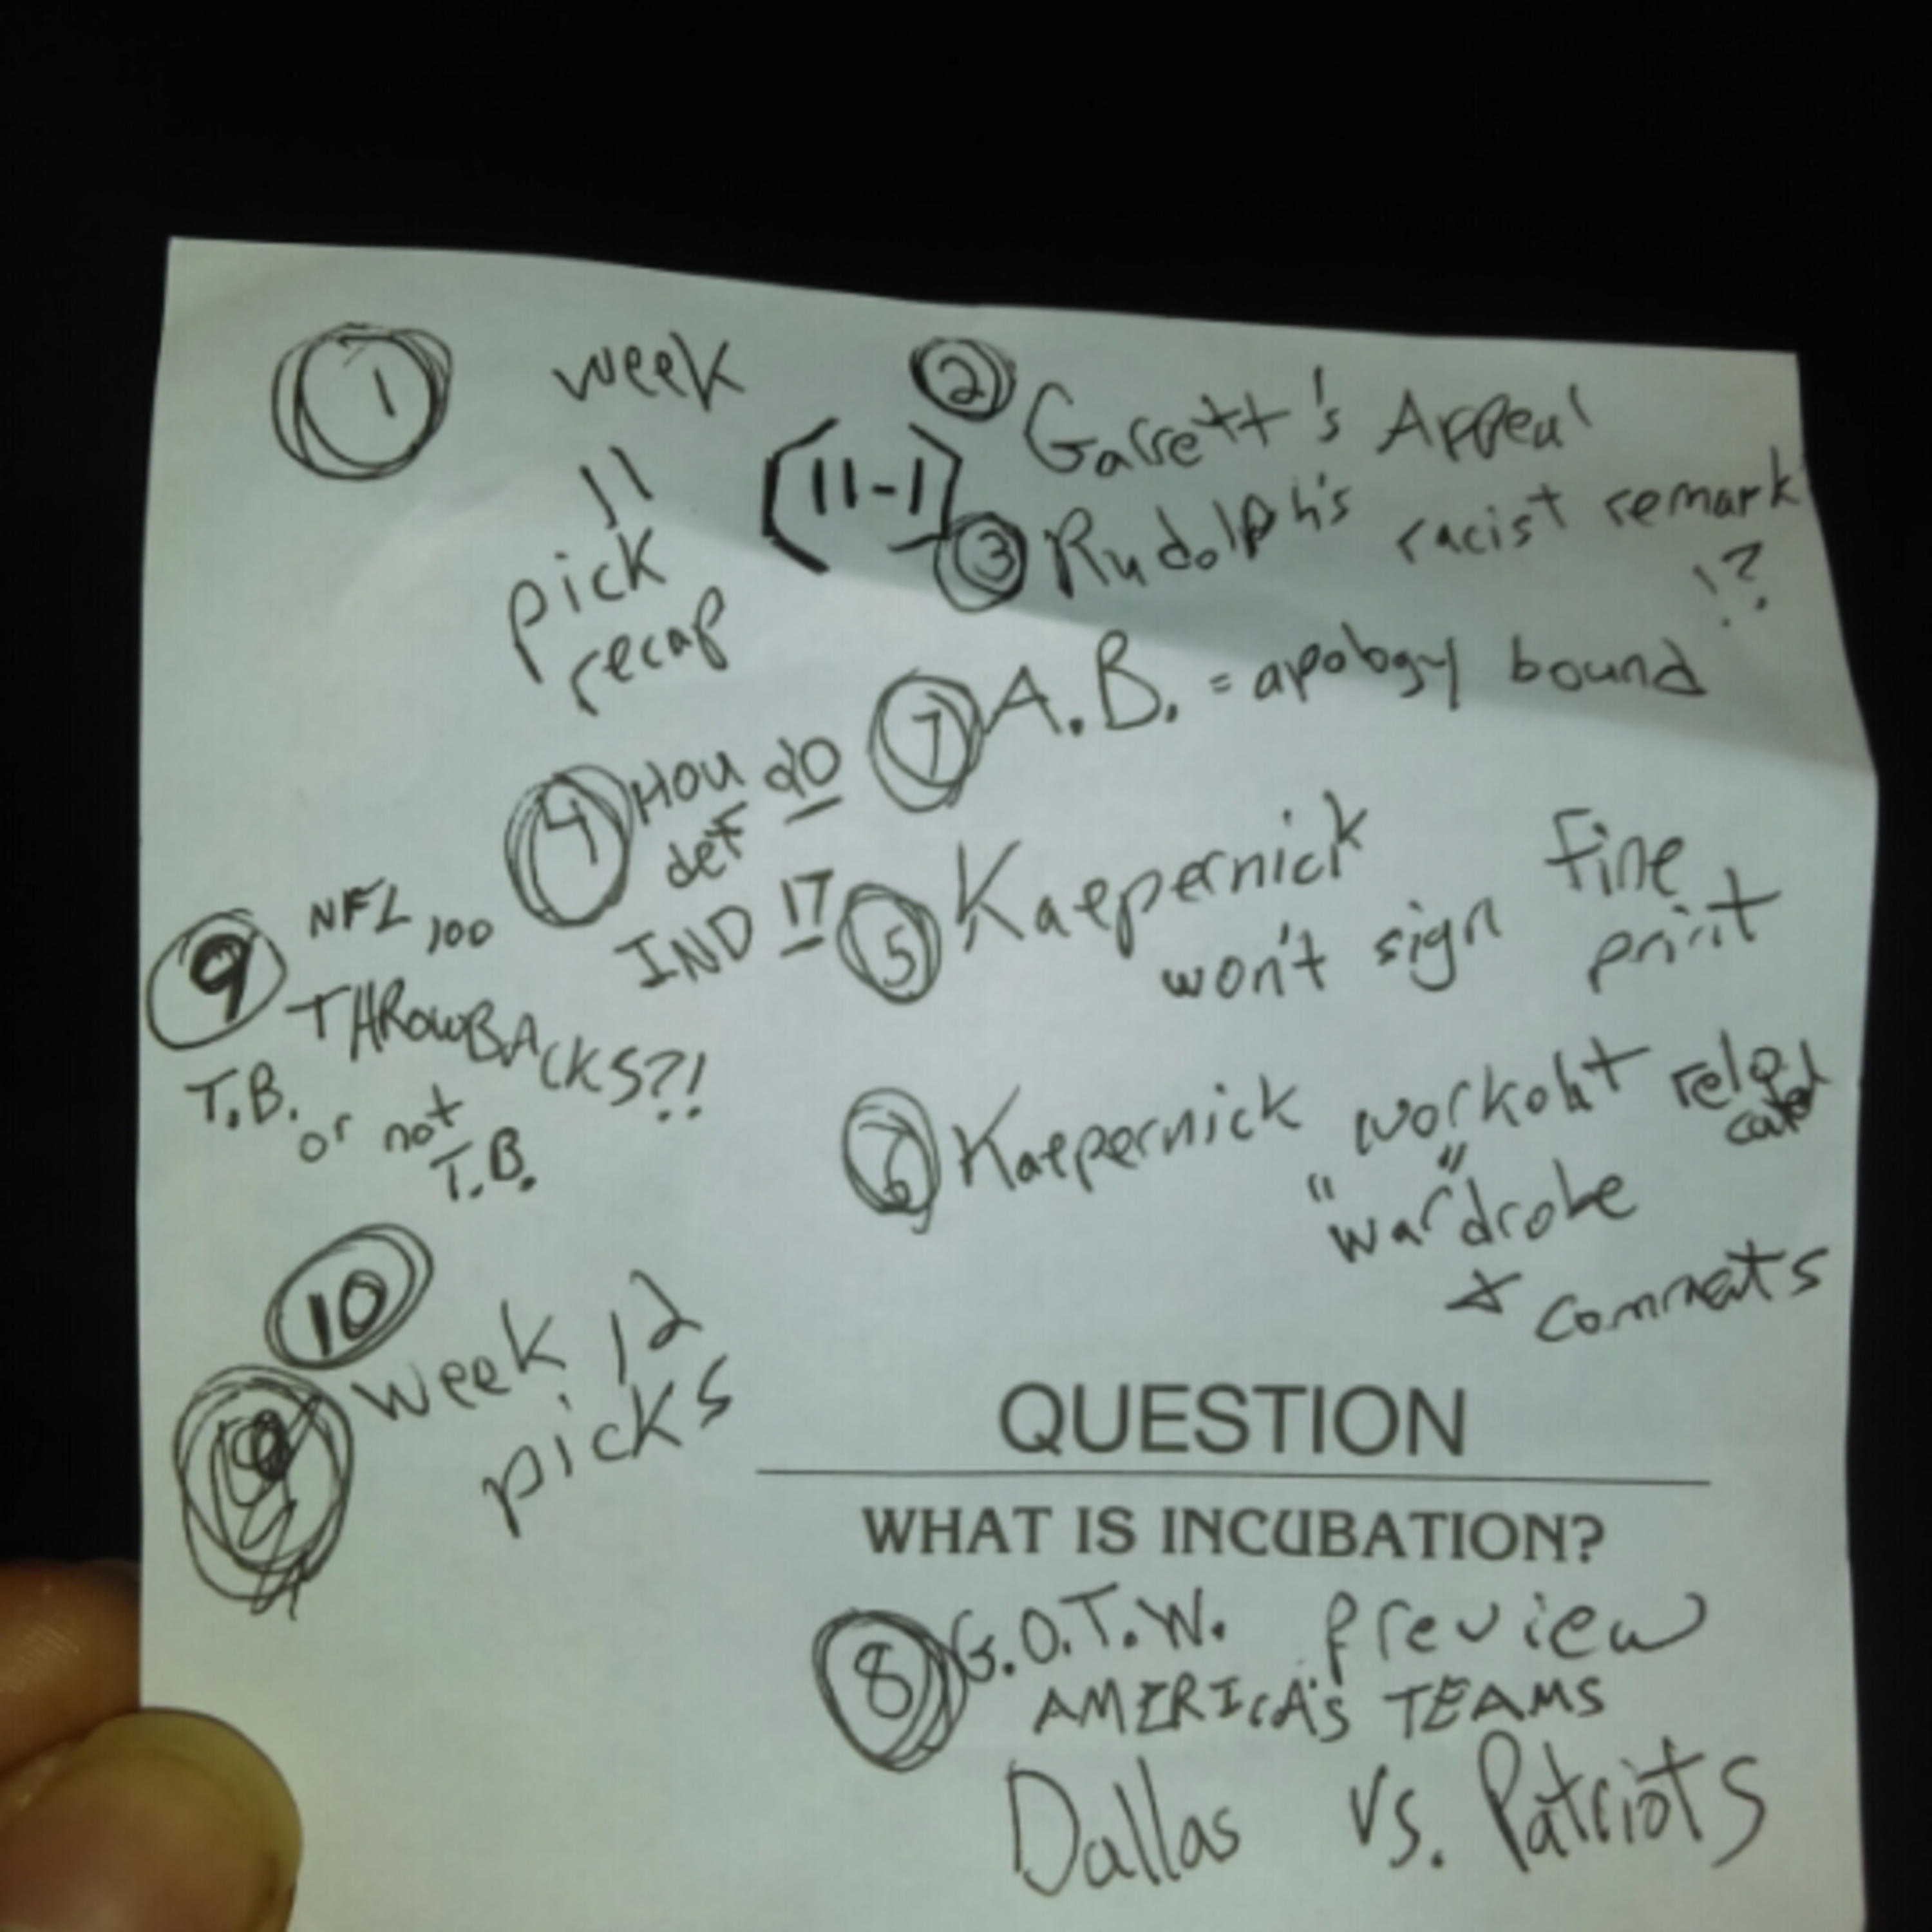 1 week
11
pick
recap
(11-1)
2 Garrett's Appeal
3 Rudolph's racist remark
!?
7 A.B. = apology bound
4 HOU do
def
IND 17
5 Kaepernick
won't sign fine
print
9 NFL 100
THROWBACKS?!
T.B. or not
T.B.
6 Kaepernick workout relo
cated
"war"drobe
+ comments
10
week 12
picks
QUESTION
WHAT IS INCUBATION?
8 G.O.T.W. preview
AMERICA'S TEAMS
Dallas vs. Patriots